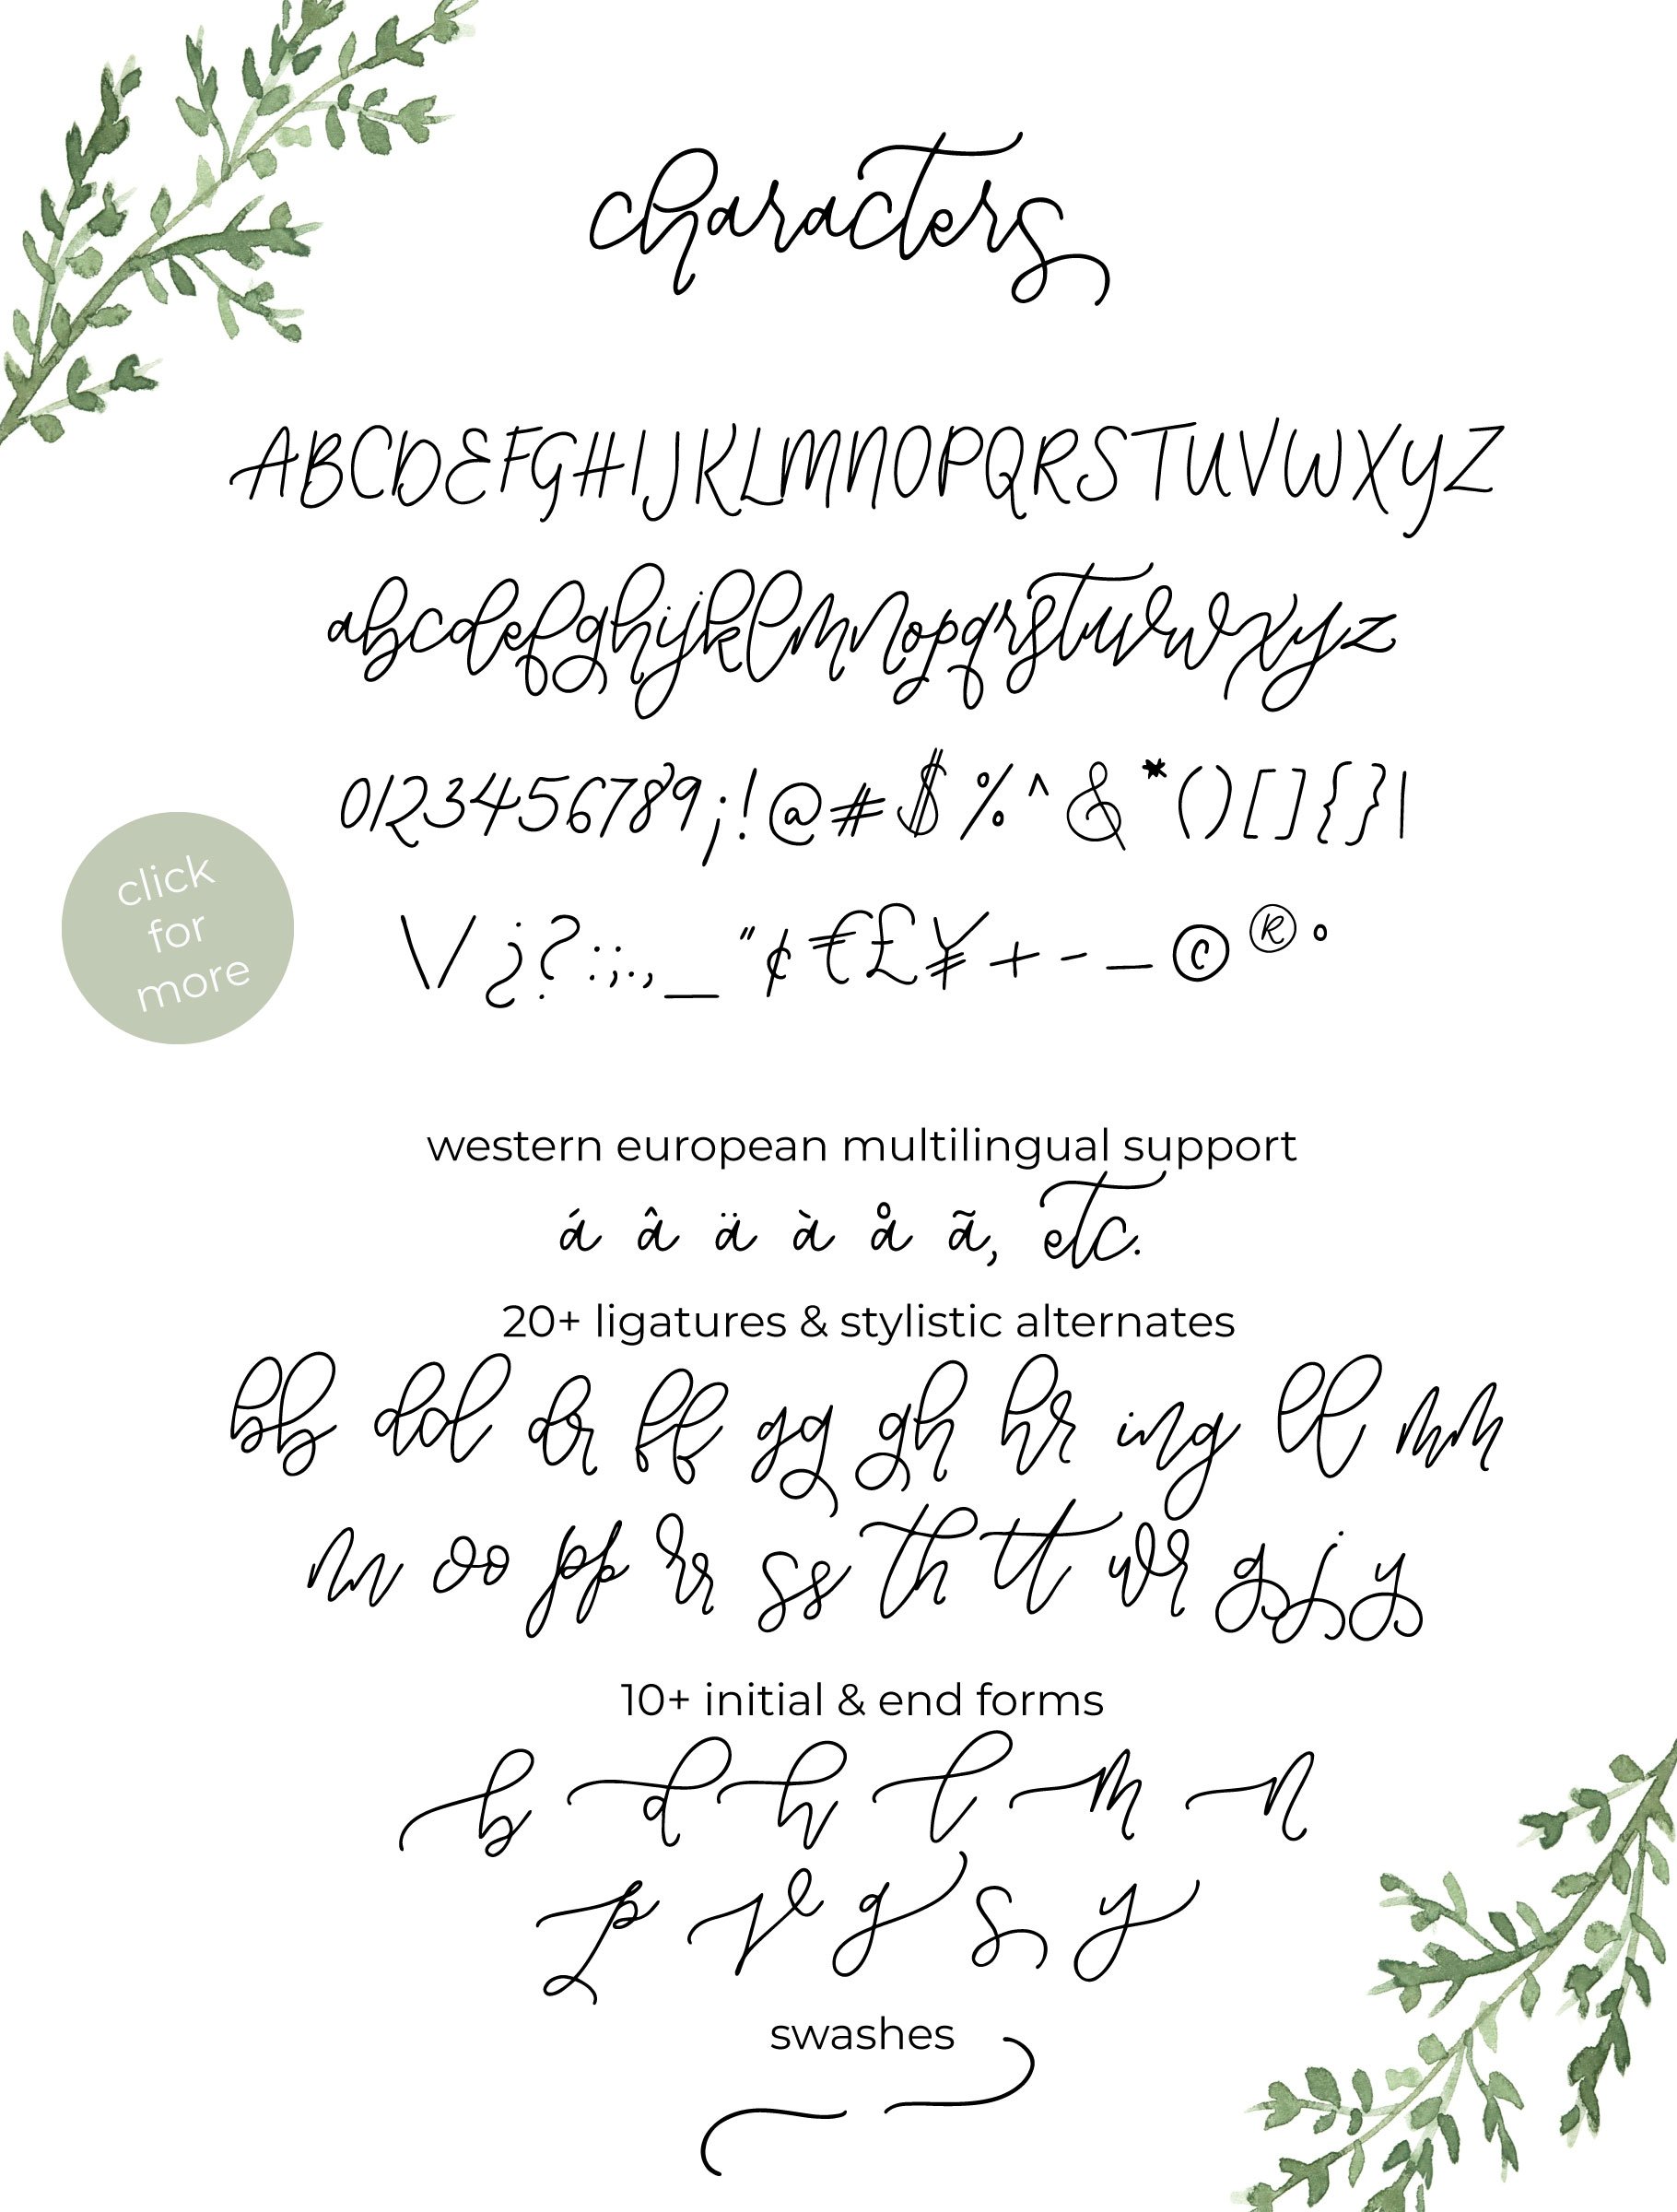 characters
ABCDEFGHIJKLMNOPQRSTUVWXYZ
abcdefghijklmnopqrstuvwxyz
0123456789;!@#$%^&*()[]{}|
click
for
more
\/¿?:;.,_"¢€£¥+-–©®°
western european multilingual support
á â ä à å ã, etc.
20+ ligatures & stylistic alternates
bb dd dr ff gg gh hr ing ll mm
nn oo pp rr ss th tt wr g j y
10+ initial & end forms
b d h l m n
p v g s y
swashes